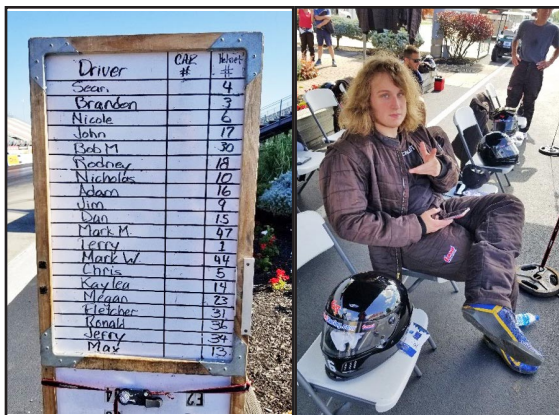 Driver CAR # Helmet #
Sean 4
Brandon 3
Nicole 6
John 17
Bob M 30
Rodney 18
Nicholas 10
Adam 16
Jim 9
Dan 15
Mark M. 47
Terry 1
Mark W. 44
Chris 5
Kaylea 14
Megan 23
Fletcher 31
Ronald 36
Jerry 34
Max 13